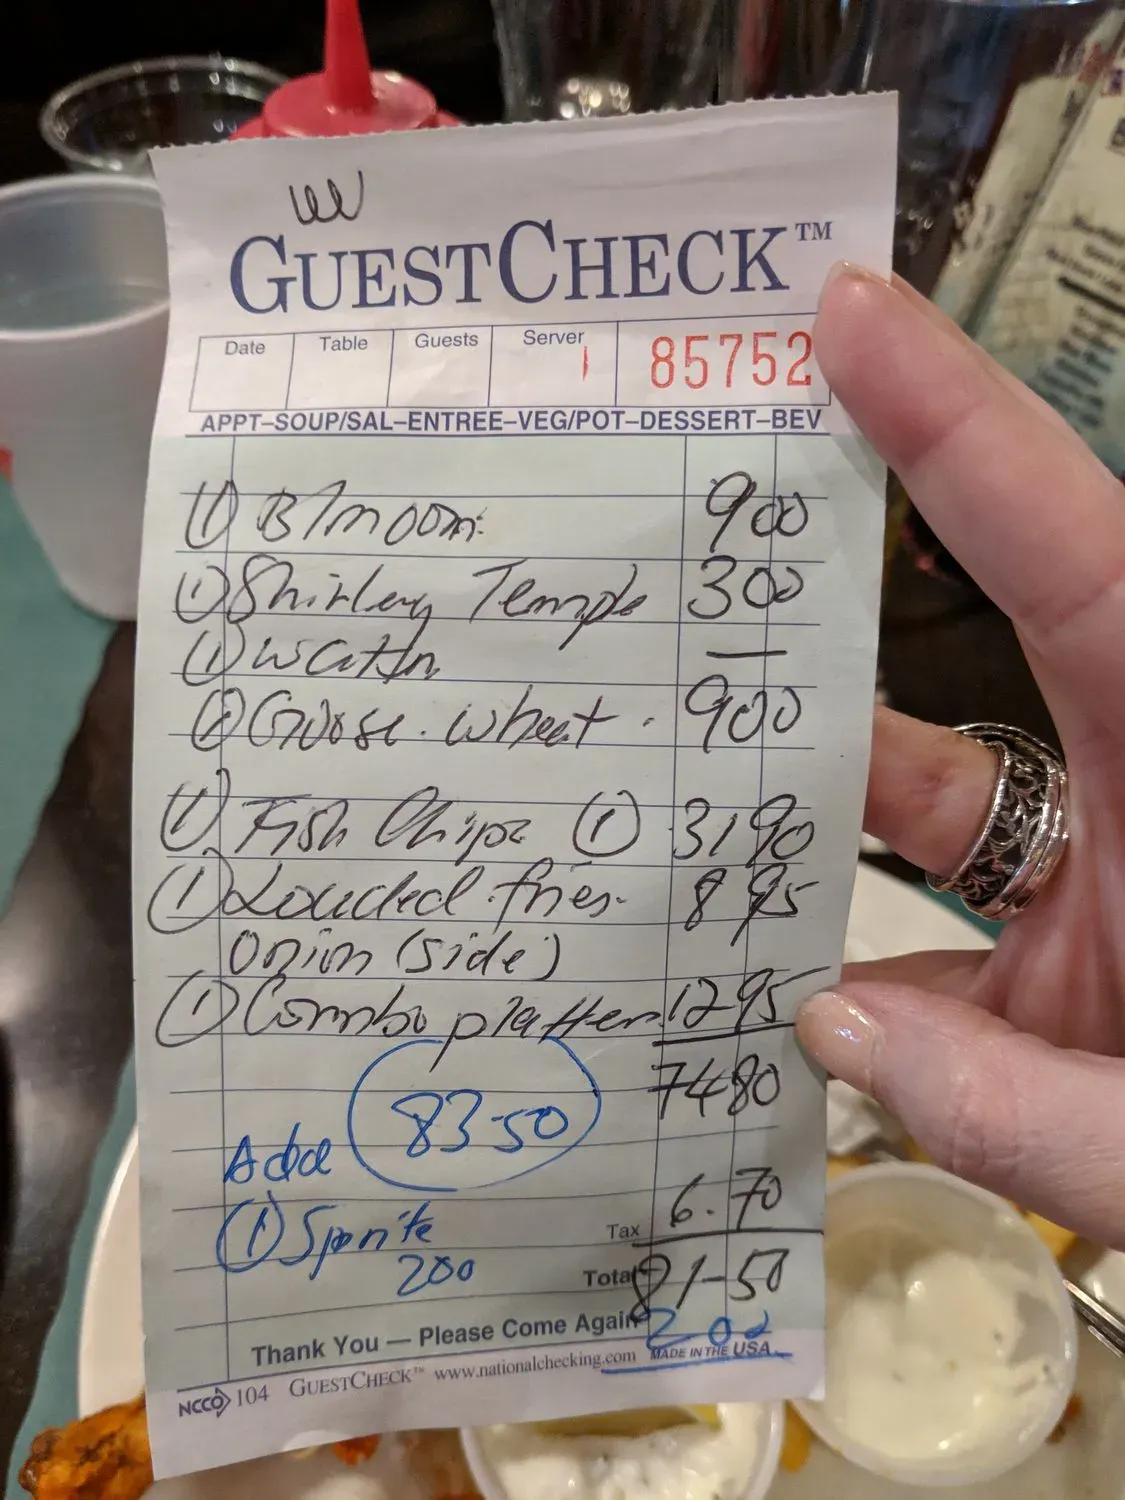 GUESTCHECK™
Date Table Guests Server 85752
APPT–SOUP/SAL–ENTREE–VEG/POT–DESSERT–BEV
(1) B/moom. 900
(1) Shirley Temple 300
(1) Water —
Goose. wheat. 900
(1) Fish Chips (1) 3190
(1) Loaded fries. 8 95
Onion (side)
(1) Combo platter 1295
7480
83-50
Add
6.70
Tax
(1) Sprite
200
Total 81-50
200
Thank You — Please Come Again
NCCO 104 GUESTCHECK™ www.nationalchecking.com MADE IN THE USA